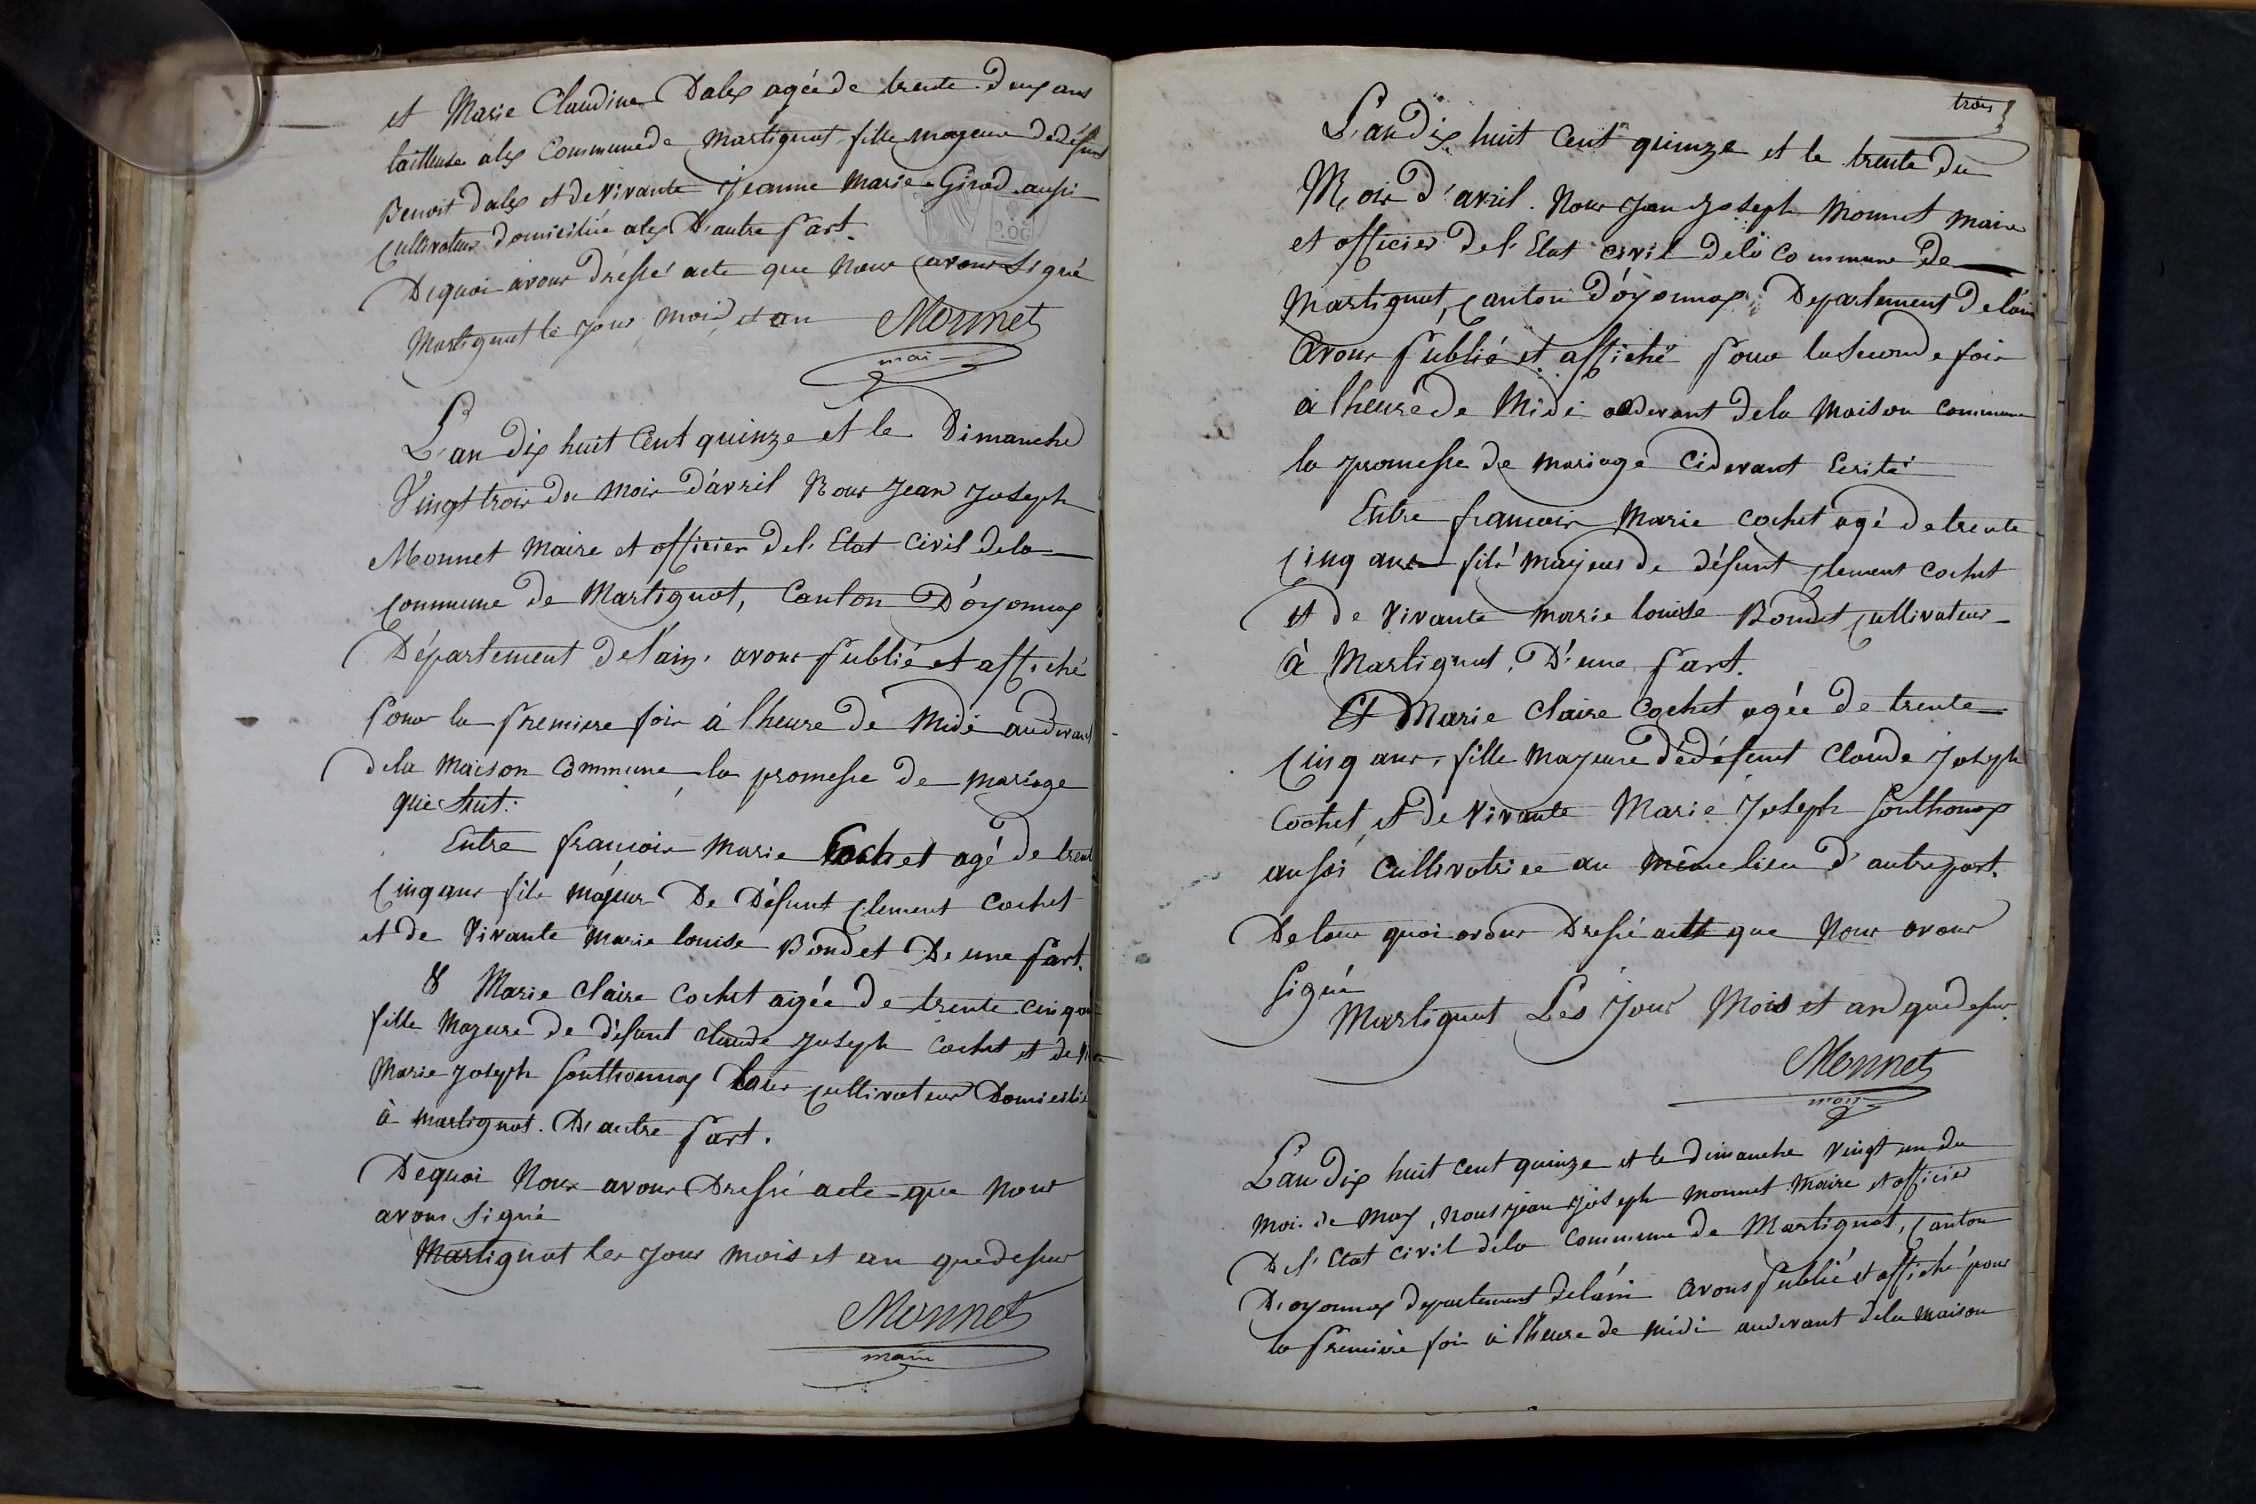 et Marie Claudine Dalex agée de trente deux ans
tailleuse alex Commune de Martignat fille mageure de défunt
Benoit dalex et de vivante Jeanne Marie Girod aussi
Cultivateur domiciliée alex D'autre part.
Dequoi avons dressé acte que Nous avons signé
Martignat le jour, mois, et an Monnet
mai
L'an dix huit Cent quinze et le Dimanche
Vingt trois du mois d'avril Nous Jean Joseph
Monnet maire et officier de l'Etat Civil dela
Commune de Martignat, Canton D'oyonnax
Département del'ain. avons publié et affiché
pour la premiere fois à l'heure de Midi audevant
dela maison Commune la promesse de mariage
qui suit:
Entre francois Marie Cochet agé de trente
Cinq ans fils majeur De Défunt Clement Cochet
et de Vivante Marie louise Bondet D'une part.
& Marie Claire Cochet agée de trente cinq ans
fille Mageure de défunt Claude Joseph Cochet et de
Marie Joseph Gouthonnax tous Cultivateurs Domicilié
à Martignat. D'autre part.
Dequoi Nous avons Dressé acte que Nous
avons signé
Martignat les Jour mois et an que dessus
Monnet
maire
trois
L'an dix huit Cent quinze et le trente du
Mois d'avril. Nous Jean Joseph Monnet Maire
et officier de l'Etat Civil dela Commune de
Martignat, Canton D'oyonnax. Departement Del'ain
Avons publié et affiché pour la seconde fois
a l'heure de Midi audevant dela Maison commune
la promesse de mariage cidevant Ecrite
Entre francois Marie Cochet agé de trente
Cinq ans fils Majeur de défunt Clement Cochet
et de Vivante Marie louise Bondet Cultivateur
à Martignat. D'une part.
Et Marie Claire Cochet agée de trente
Cinq ans, fille Mageure de défunt Claude Joseph
Cochet et de Vivante Marie Joseph Gouthonnax
aussi Cultivatrice au même lieu d'autre part.
De tous quoi avons Dressé acte que Nous avons
signé
Martignat Les Jour Mois et an que dessus.
Monnet
maire
L'an dix huit cent quinze et le dimanche vingt un du
mois de May, nous jean joseph Monnet Maire et officier
De l'Etat Civil dela Commune de Martignat, Canton
D'oyonnax departement delain avons publié et affiché pour
la premiere fois à l'heure de midi audevant dela maison